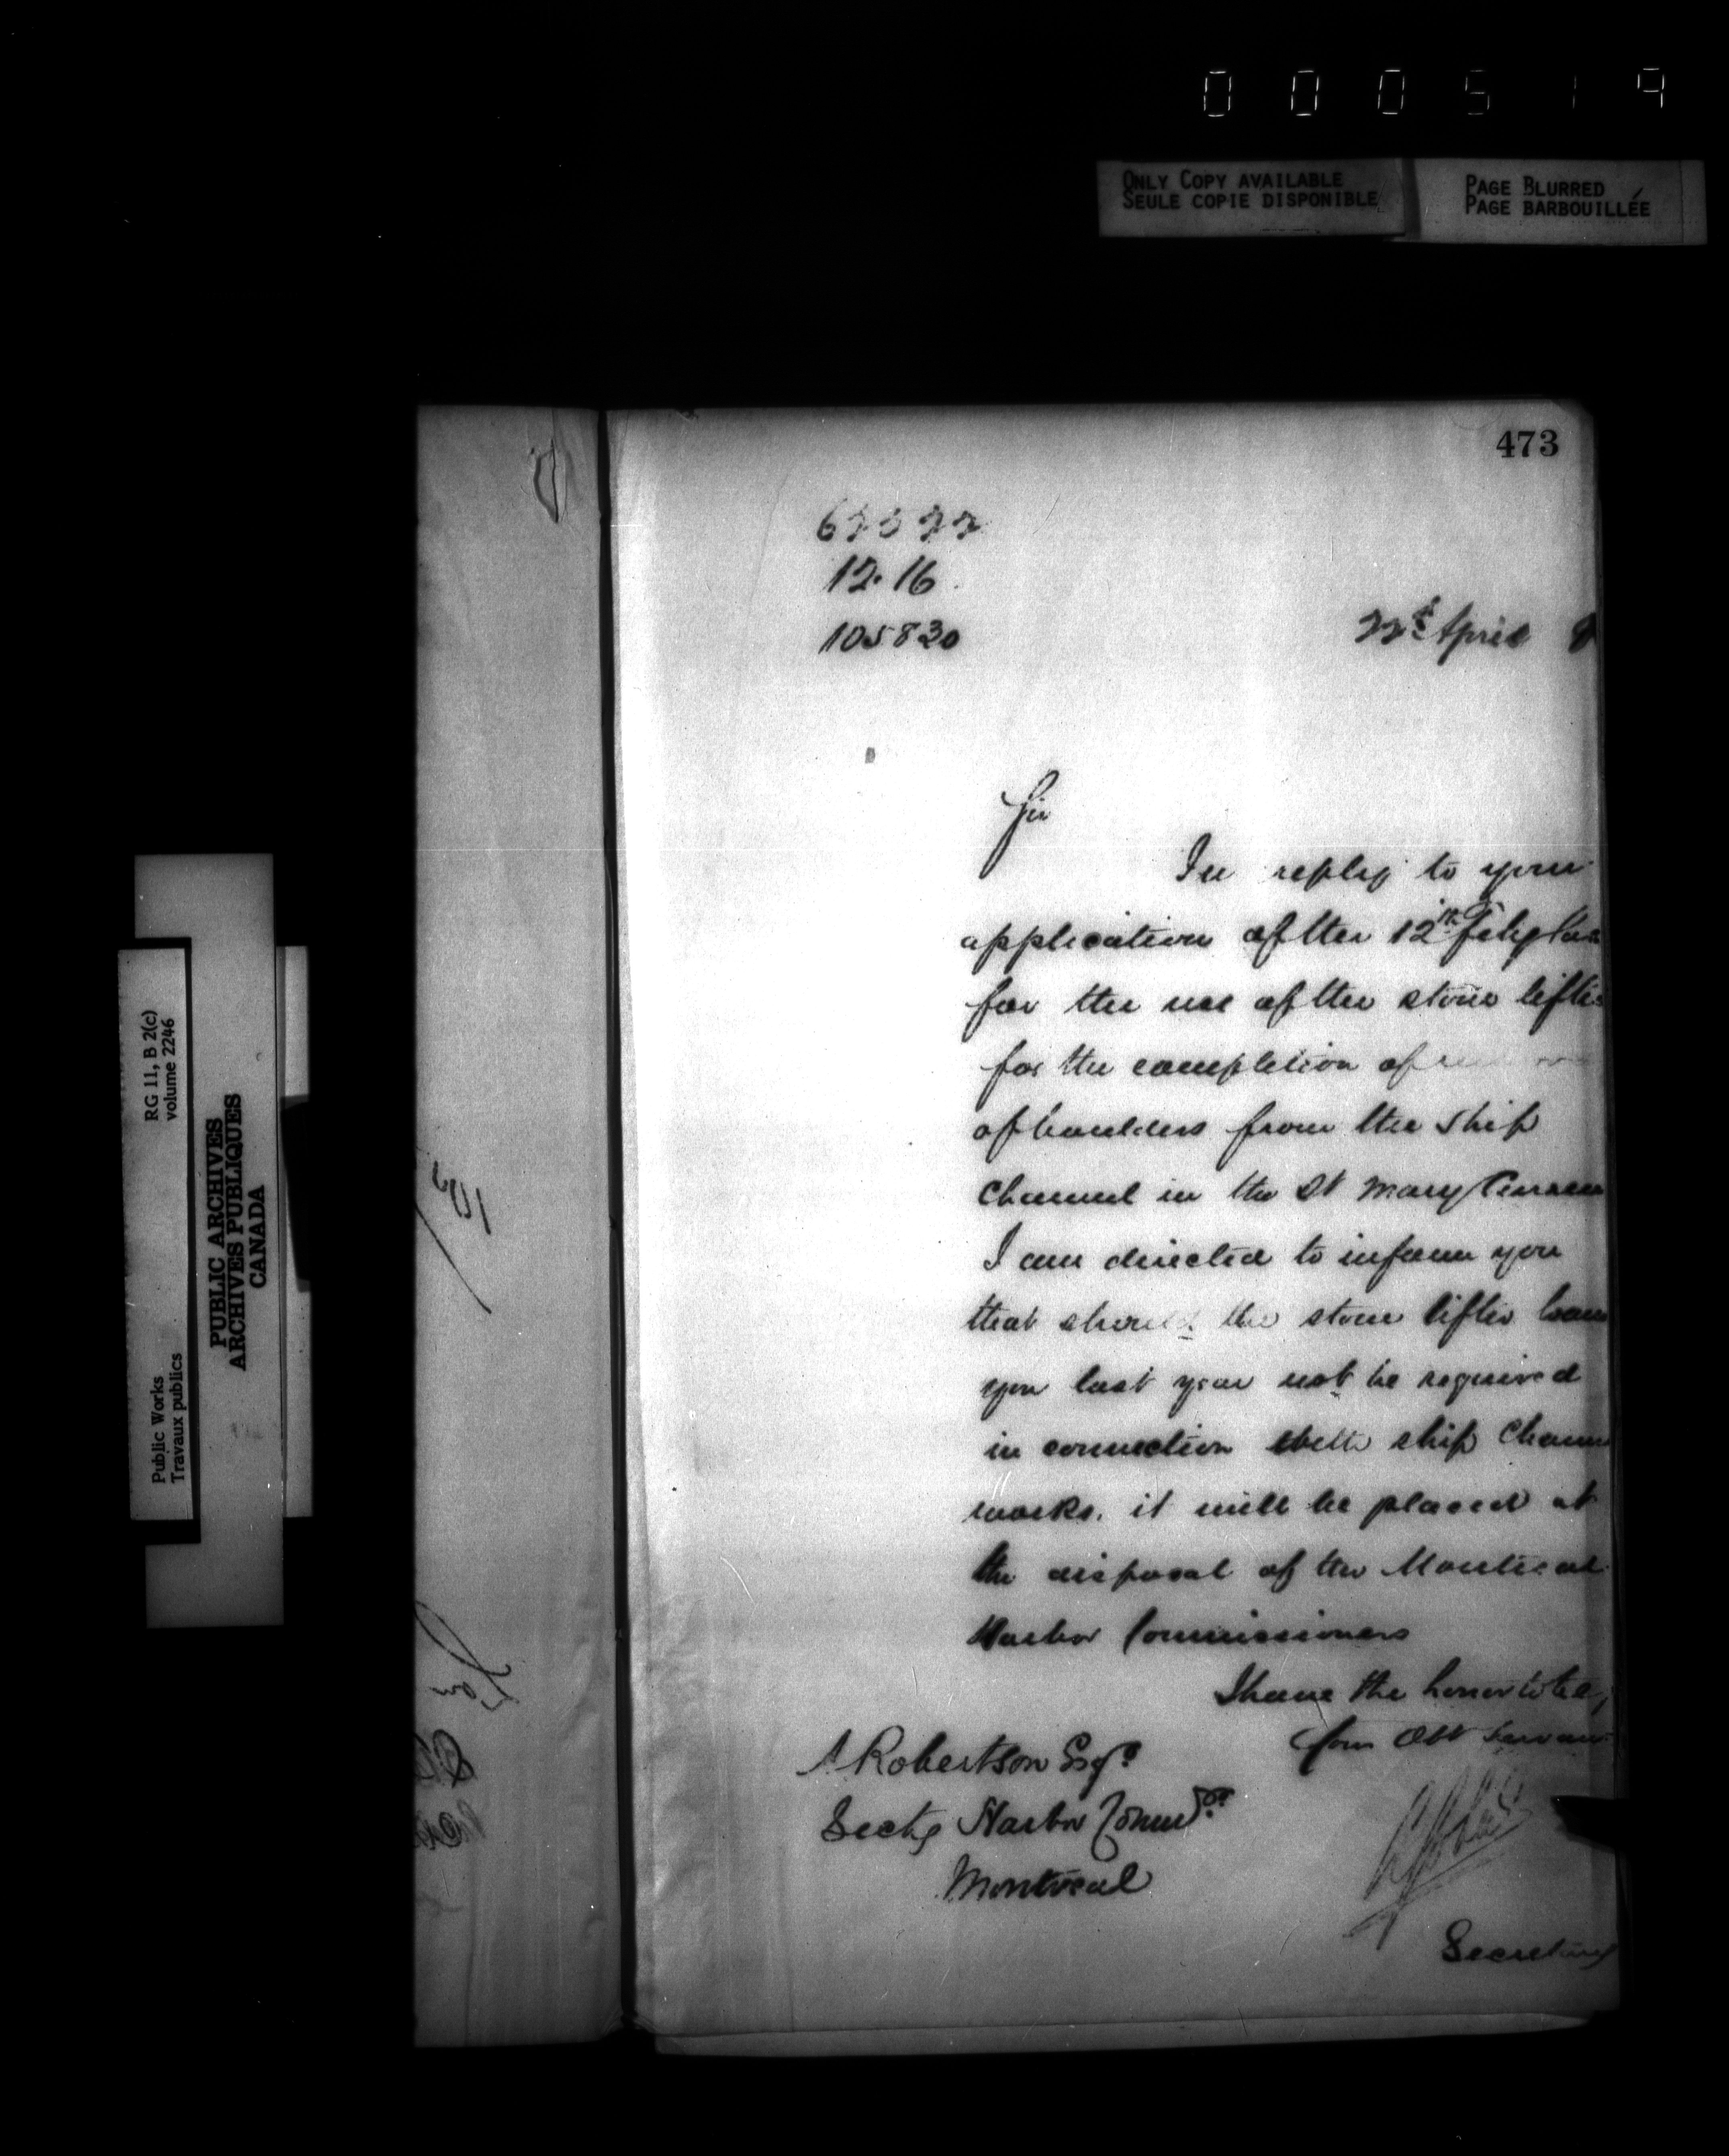 000519
ONLY COPY AVAILABLE
SEULE COPIE DISPONIBLE
PAGE BLURRED
PAGE BARBOUILLÉE
473
12.16
105830
22d April
Sir
In reply to your
application of the 12th
for the use of the stone lifter
for the completion of
of boulders from the ship
channel in the St Mary Curren
I am directed to inform you
that should the stone lifter loan
you last year not be required
in connection with ship chann
works, it will be placed at
the disposal of the Montreal
Harbor Commissioners
I have the honor to be,
Your Obt Servan
A Robertson Esqr
Secty Harbor Comrs
Montreal
Secretary
RG 11, B 2(c)
volume 2246
PUBLIC ARCHIVES
ARCHIVES PUBLIQUES
CANADA
Public Works
Travaux publics